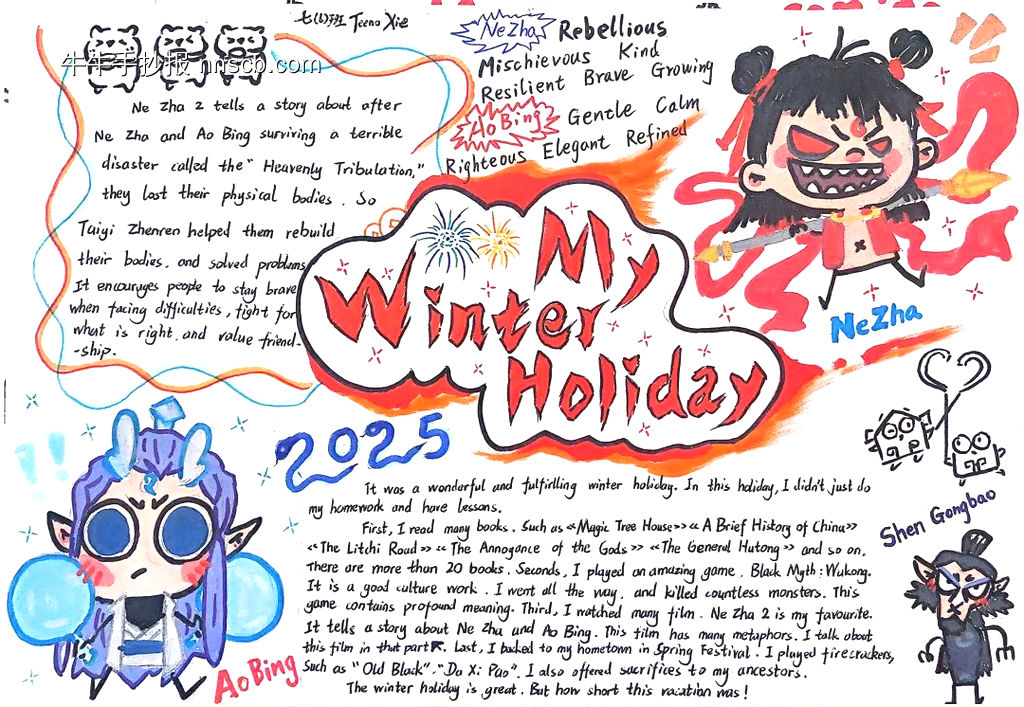 七(6)班 Teeno Xie
牛牛手抄报 nnscb.com
Ne Zha 2 tells a story about after
Ne Zha and Ao Bing surviving a terrible
disaster called the "Heavenly Tribulation,"
they lost their physical bodies. So
Taiyi Zhenren helped them rebuild
their bodies. and solved problems
It encourages people to stay brave
when facing difficulties, fight for
what is right. and value friend-
-ship.
NeZha Rebellious
Mischievous Kind
Resilient Brave Growing
Ao Bing Gentle Calm
Righteous Elegant Refined
My
Winter
Holiday
2025
NeZha
Ao Bing
Shen Gongbao
It was a wonderful and fulfirlling winter holiday. In this holiday, I didn't just do
my homework and have lessons.
First, I read many books. Such as «Magic Tree House» «A Brief History of China»
«The Litchi Road» «The Annoyance of the Gods» «The General Hutong» and so on.
There are more than 20 books. Seconds, I played an amazing game. Black Myth: Wukong.
It is a good culture work. I went all the way, and killed countless monsters. This
game contains profound meaning. Third, I watched many film. Ne Zha 2 is my favourite.
It tells a story about Ne Zha and Ao Bing. This film has many metaphors. I talk about
this film in that part. Last, I backed to my hometown in Spring Festival. I played firecrackers,
such as "Old Black". "Da Xi Pao". I also offered sacrifices to my ancestors.
The winter holiday is great. But how short this vacation was!